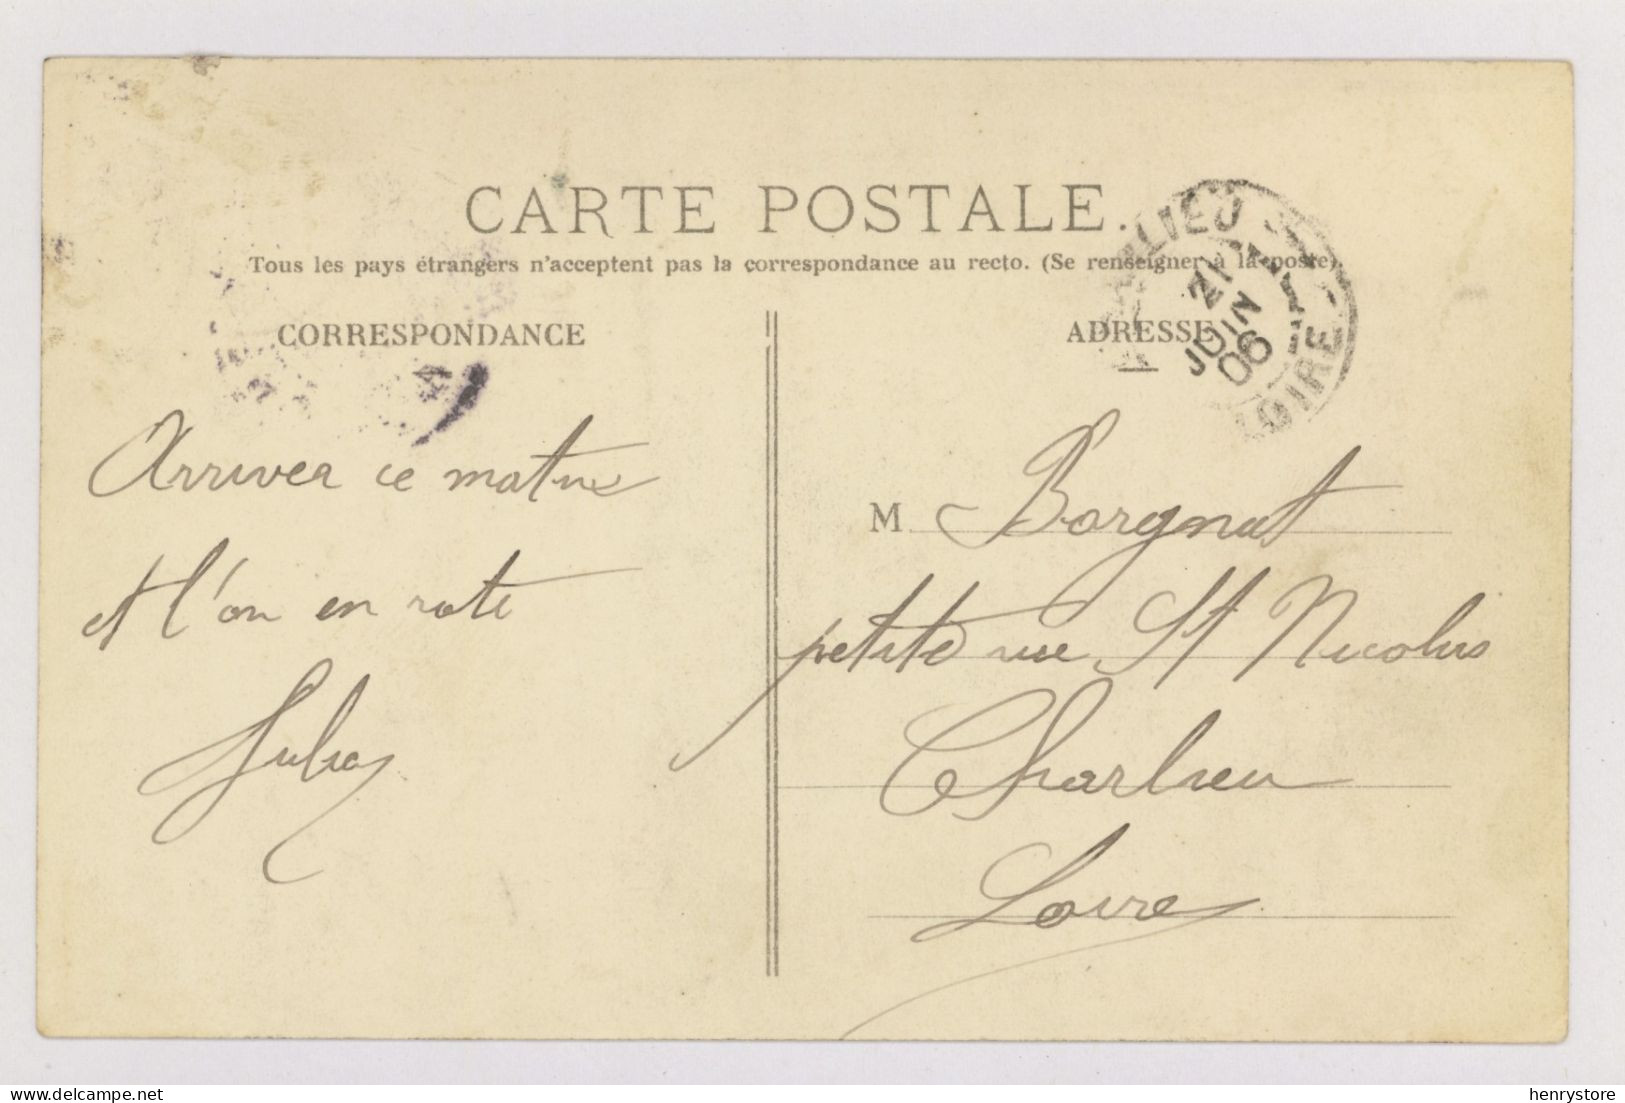 CARTE POSTALE.
Tous les pays étrangers n'acceptent pas la correspondance au recto. (Se renseigner à la poste).
CORRESPONDANCE
ADRESSE
LIEU
21
JUIN
06
LOIRE
Arriver ce matin
et l'on en rote
Jules
M Borgnat
petite rue St Nicolas
Charlieu
Loire
henrystore